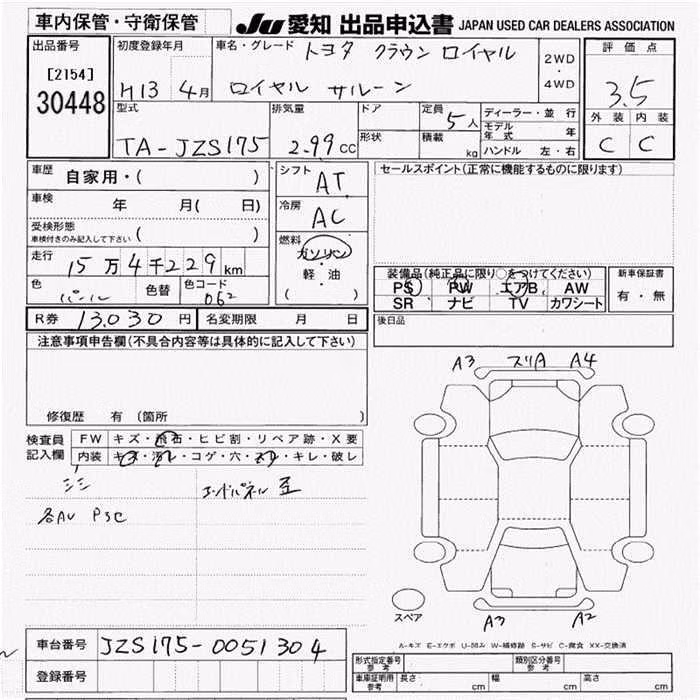 車内保管・守衛保管
JU 愛知 出品申込書 JAPAN USED CAR DEALERS ASSOCIATION
出品番号
[2154]
30448
初度登録年月
H13 4月
車名・グレード トヨタ クラウン ロイヤル
ロイヤル サルーン
2WD
・
4WD
評価点
3.5
外装 内装
C C
型式
TA-JZS175
排気量
2.99cc
ドア
形状
定員 5人
積載 kg
ディーラー・並行
モデル年式 年
ハンドル 左・右
車歴 自家用・( )
車検 年 月( 日)
受検形態
車検付きのみ記入して下さい ( )
走行 15万4千229km
色 パール 色替 色コード 062
シフト AT
冷房 AC
燃料
ガソリン
・
軽・油
( )
セールスポイント(正常に機能するものに限ります)
装備品(純正品に限り○をつけてください)
PS PW エアB AW
SR ナビ TV カワシート
新車保証書
有・無
R券 13.030円 名変期限 月 日
後日品
注意事項申告欄(不具合内容等は具体的に記入して下さい)
修復歴 有 (箇所 )
検査員
記入欄
FW キズ・飛石・ヒビ割・リペア跡・X要
内装 キズ・汚レ・コゲ・穴・スレ・キレ・破レ
シミ エンドパネル 歪
各AU PSC
A3 スリA A4
スペア
A3 A2
A-キズ E-エクボ U-凹み W-補修跡 S-サビ C-腐食 XX-交換済
車台番号 JZS175-0051304
登録番号
形式指定番号
参考
類別区分番号
参考
車庫証明用
参考
長さ cm 幅 cm 高さ cm